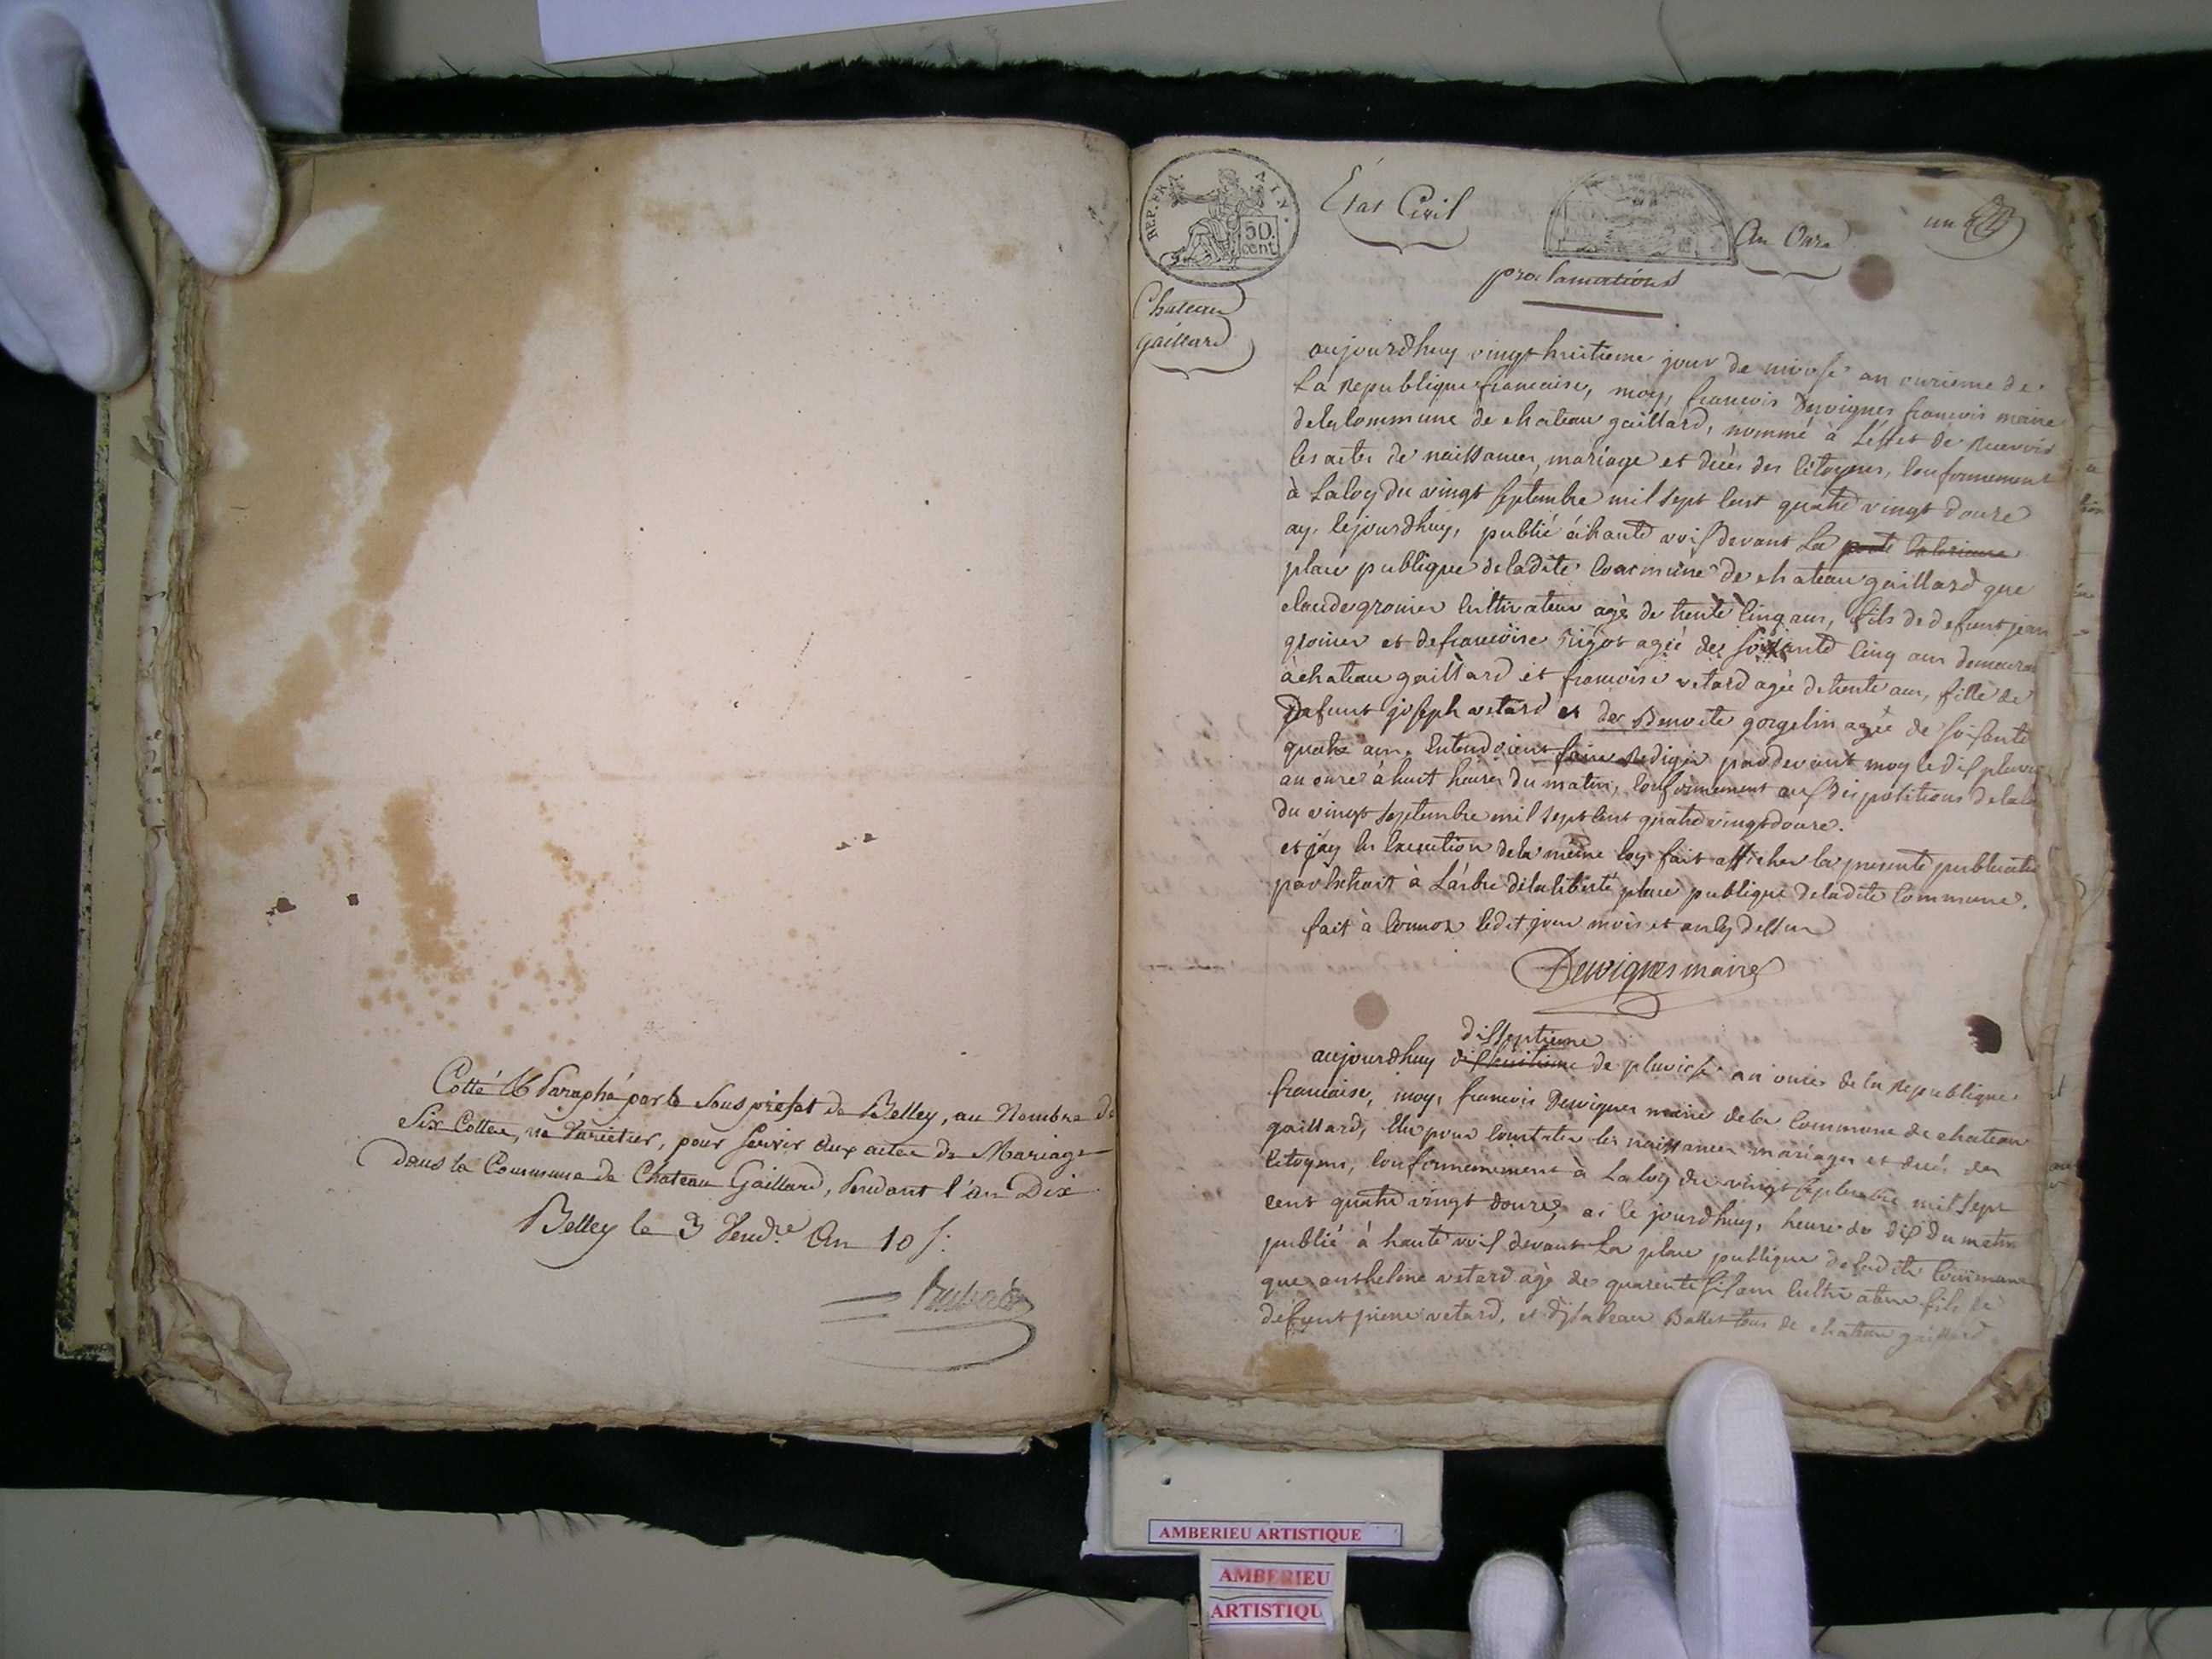 Cotté & Paraphé par le Sous préfet de Belley, au Nombre de
Six Cottes, ne Varietur, pour servir aux actes de Mariage
dans la Commune de Chateau Gaillard, pendant l'an Dix
Belley le 3 Vend.re An 10 f.
REP. FRA. AIN.
50 cent
État Civil
An Onze
un
proclamations
Chateau
gaillard
aujourdhuy vingt huitieme jour de nivose an onzieme de
La Republique francaise, moy, francois Dervignes francois maire
dela Commune de chateau gaillard, nommé à L'effet de recevoir
les actes de naissances, mariage et décès des Citoyens, Conformement
à Laloy du vingt septembre mil sept Cent quatre vingt douze
ay, Cejourdhuy, publié à haute voix devant La porte
place publique deladite Commune de chateau gaillard que
claude gronier Cultivateur agé de trente Cinq ans, fils de defunt jean
gronier et de francoise rigot agée de soixante Cinq ans demeurant
à chateau gaillard et francoise vetard agée de trente ans, fille de
Defunt joseph vetard et de Benoite gorgelin agée de soixante
quatre ans. Entendoient faire Rediger pardevant moy le dix pluviose
an onze à huit heures du matin, Conformement aux dispositions dela loy
du vingt septembre mil sept Cent quatre vingt douze.
et j'ay En Execution dela même loy fait afficher la presente publication
par Extrait à L'arbre dela liberté place publique deladite Commune.
fait à ledit jour mois et an Cy dessus
Dervignes maire
dixseptieme
aujourdhuy dixhuitieme de pluviose an onze de la Republique
francaise, moy, francois Dervignes maire dela Commune de chateau
gaillard, Elu pour Constater les naissances mariages et décès des
Citoyens, Conformement à La loy du vingt septembre mil sept
cent quatre vingt douze, ai Ce jourdhuy, heure de dix du matin
publié à haute voix devant La place publique deladite Commune
que anthelme vetard agé de quarente six ans Cultivateur fils de
défunt pierre vetard, et d'isabeau Ballet tous de chateau gaillard
AMBERIEU ARTISTIQUE
AMBERIEU
ARTISTIQU